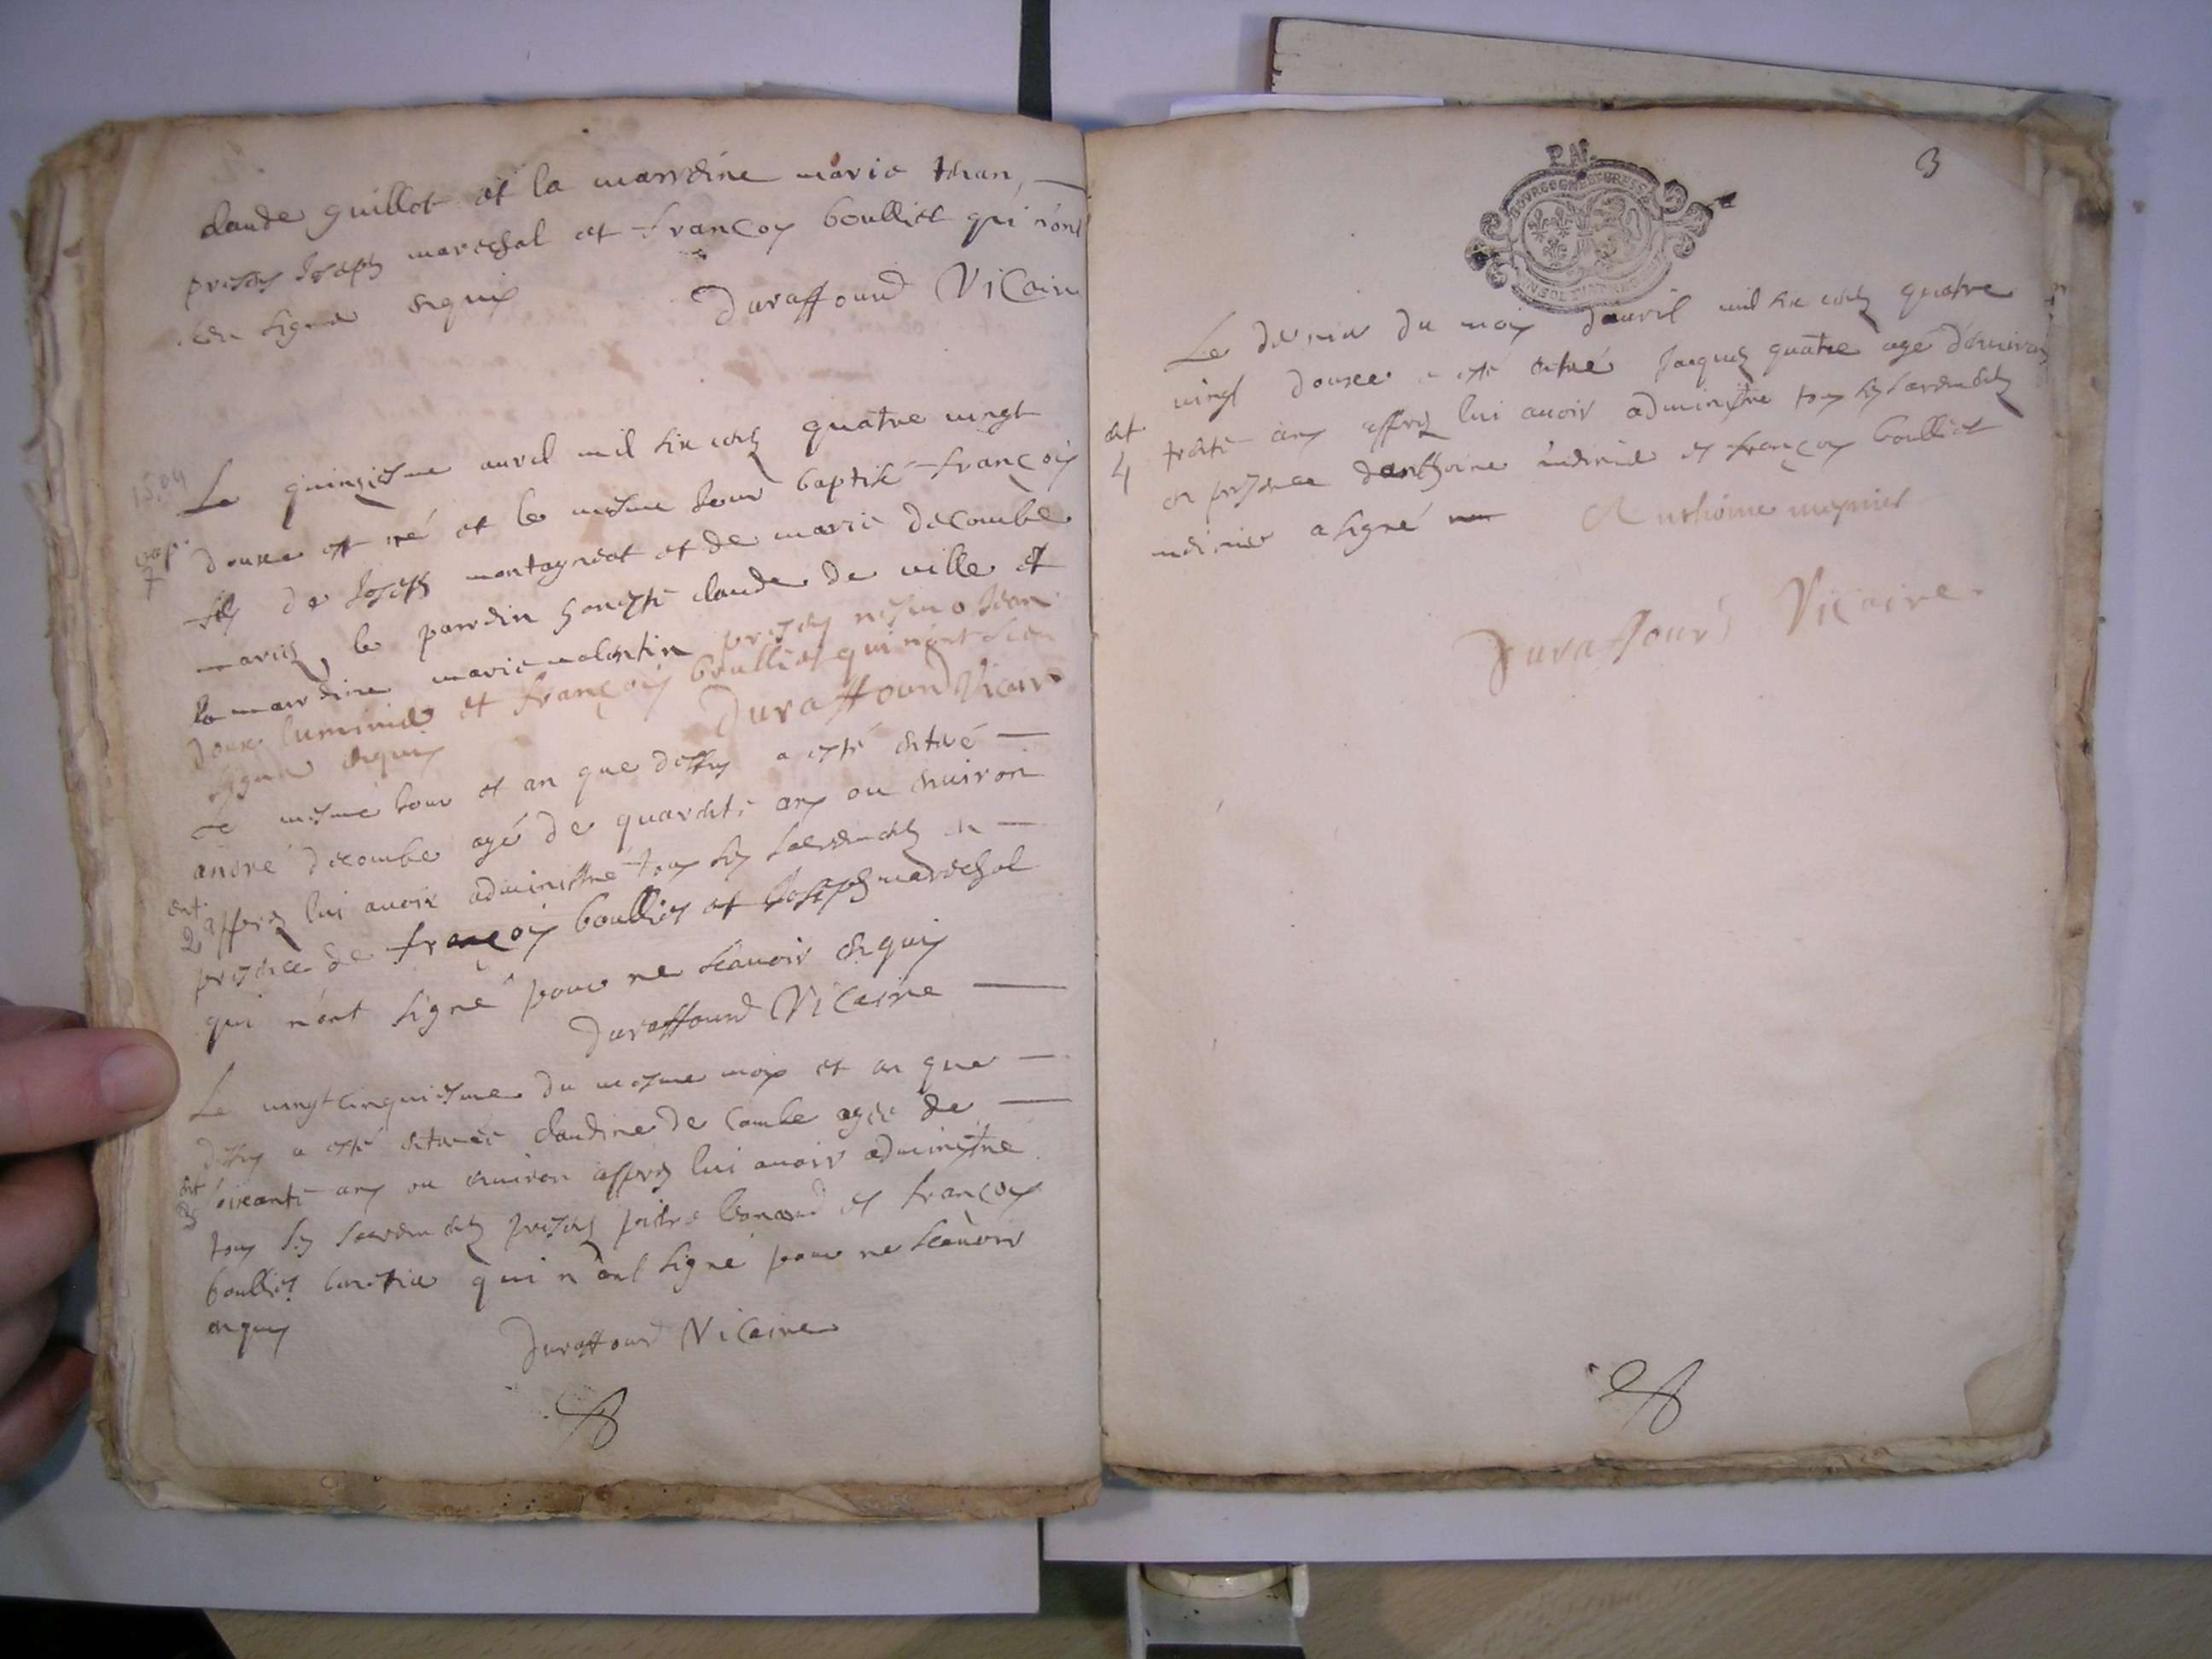 claude guillot et la marrdine marie
presens Joseph mareschal et françois boulliet qui n'ont
sceu signer enquis Duraffourd Vicaire
15.04
Le quinziesme auril mil six cens quatre vingt
bap. 7
douze est né et le mesme Jour baptisé françois
fils de Joseph montagniat et de marie decombe
mariés, le parrdin honeste claude de ville et
la marrdine marie presens
luminier et françois boulliet qui n'ont sceu
signer enquis Duraffourd Vicaire
Le mesme Jour et an que dessus a esté enterré
andré decombe agé de quarente ans ou enuiron
ent. 2
apprez lui auoir administré tous les sacremens en
presence de françois boulliet et Joseph mareschal
qui n'ont signé pour ne scauoir enquis
Duraffourd Vicaire
Le vingtcinquiesme du mesme mois et an que
dessus a esté enterrée claudine de combe agée de
ent 3
soixante ans ou enuiron apprez lui auoir administré
tous les sacremens presens et françois
boulliet qui n'ont signé pour ne scauoir
enquis
Duraffourd Vicaire
3
P.N.
BOURGOGNE ET BRESSE
Le dernier du mois d'auril mil six cens quatre
vingt douze a esté enterré Jacques quatre agé d'enuiron
ent. 4
trente ans apprez lui auoir administré tous les sacremens
en presence d'anthoine et françois boulliet
a signé Anthoine
Duraffourd Vicaire